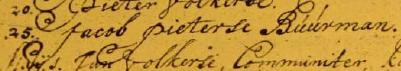 20. Pieter Volkerse.
25. Jacob Pieterse Büürman.
Jan Volkerse, Communiter